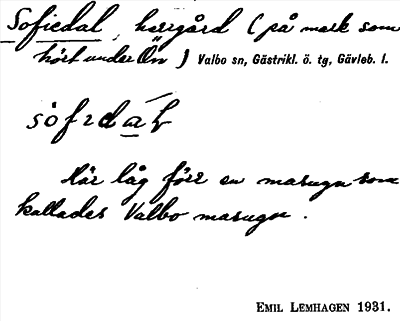 Sofiedal, herrgård (på mark som
hört under Ön) Valbo sn, Gästrikl. ö. tg, Gävleb. l.
sòfɩdáɫ
Här låg förr en masugn som
kallades Valbo masugn.
EMIL LEMHAGEN 1931.